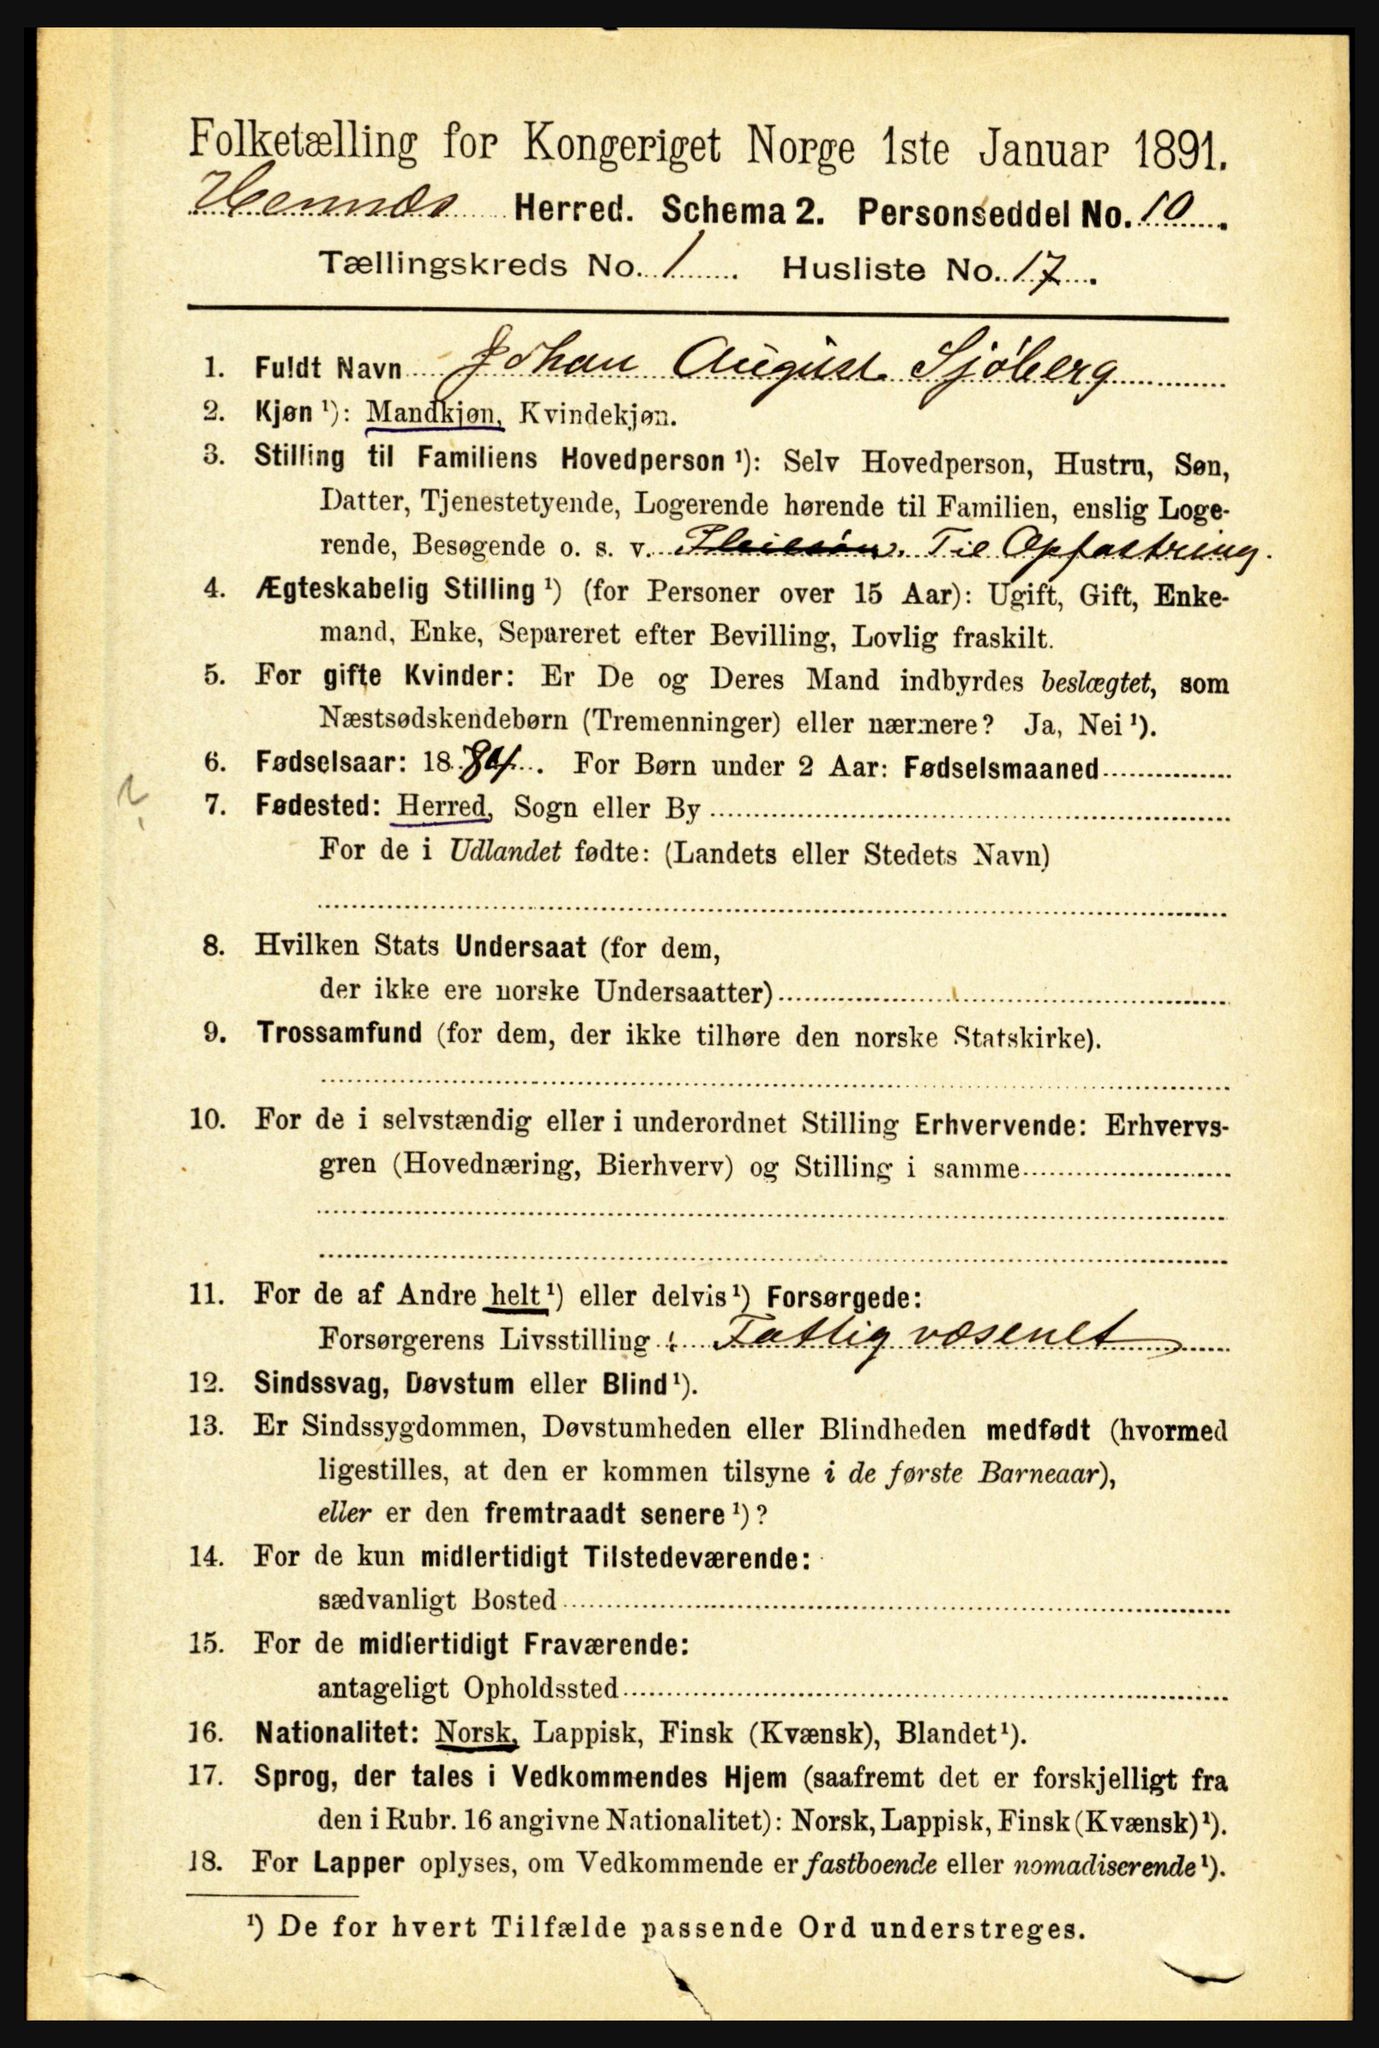 Folketælling for Kongeriget Norge 1ste Januar 1891.
Hemnæs Herred. Schema 2. Personseddel No. 10.
Tællingskreds No. 1. Husliste No. 17.
1. Fuldt Navn Johan August Sjöberg
2. Kjøn ¹): Mandkjøn, Kvindekjøn.
3. Stilling til Familiens Hovedperson ¹): Selv Hovedperson, Hustru, Søn,
Datter, Tjenestetyende, Logerende hørende til Familien, enslig Loge-
rende, Besøgende o. s. v. Pleiesøn. Til Opfostring.
4. Ægteskabelig Stilling ¹) (for Personer over 15 Aar): Ugift, Gift, Enke-
mand, Enke, Separeret efter Bevilling, Lovlig fraskilt.
5. For gifte Kvinder: Er De og Deres Mand indbyrdes beslægtet, som
Næstsødskendebørn (Tremenninger) eller nærmere? Ja, Nei ¹).
6. Fødselsaar: 1884. For Børn under 2 Aar: Fødselsmaaned
7. Fødested: Herred, Sogn eller By
For de i Udlandet fødte: (Landets eller Stedets Navn)
8. Hvilken Stats Undersaat (for dem,
der ikke ere norske Undersaatter)
9. Trossamfund (for dem, der ikke tilhøre den norske Statskirke).
10. For de i selvstændig eller i underordnet Stilling Erhvervende: Erhvervs-
gren (Hovednæring, Bierhverv) og Stilling i samme
11. For de af Andre helt ¹) eller delvis ¹) Forsørgede:
Forsørgerens Livsstilling: Fattigvæsenet
12. Sindssvag, Døvstum eller Blind ¹).
13. Er Sindssygdommen, Døvstumheden eller Blindheden medfødt (hvormed
ligestilles, at den er kommen tilsyne i de første Barneaar),
eller er den fremtraadt senere ¹)?
14. For de kun midlertidigt Tilstedeværende:
sædvanligt Bosted
15. For de midlertidigt Fraværende:
antageligt Opholdssted
16. Nationalitet: Norsk, Lappisk, Finsk (Kvænsk), Blandet ¹).
17. Sprog, der tales i Vedkommendes Hjem (saafremt det er forskjelligt fra
den i Rubr. 16 angivne Nationalitet): Norsk, Lappisk, Finsk (Kvænsk) ¹).
18. For Lapper oplyses, om Vedkommende er fastboende eller nomadiserende ¹).
¹) De for hvert Tilfælde passende Ord understreges.